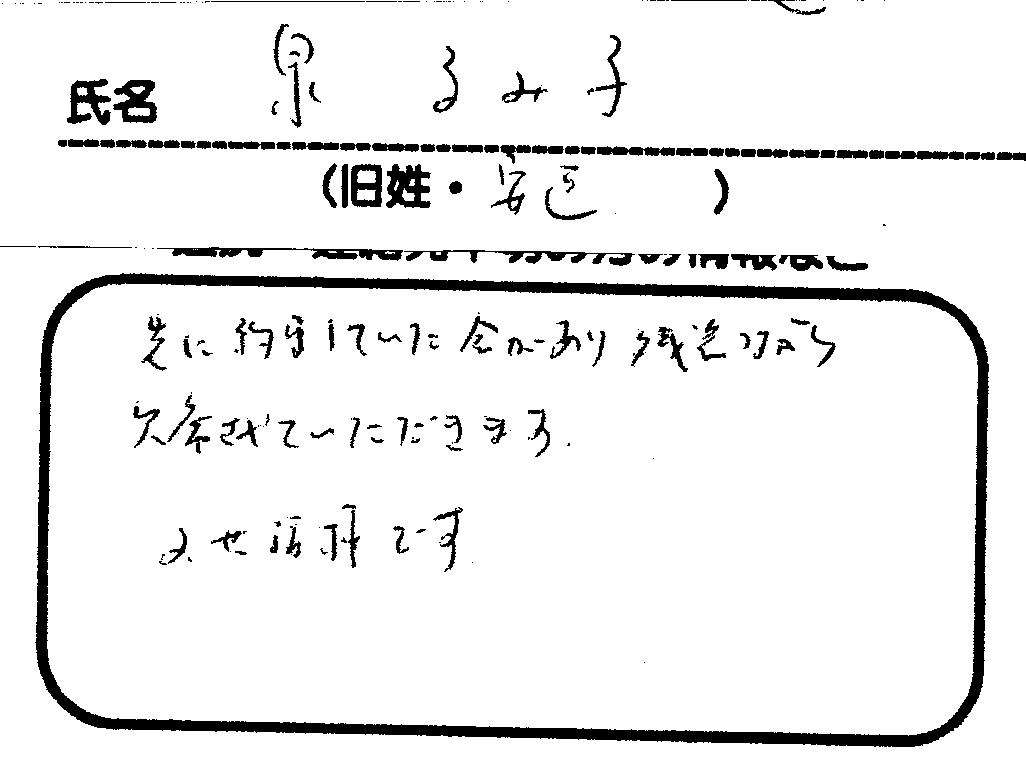 氏名 泉 るみ子
(旧姓・安達 )
先に約束していた会があり 残念ながら
欠席させていただきます.
です